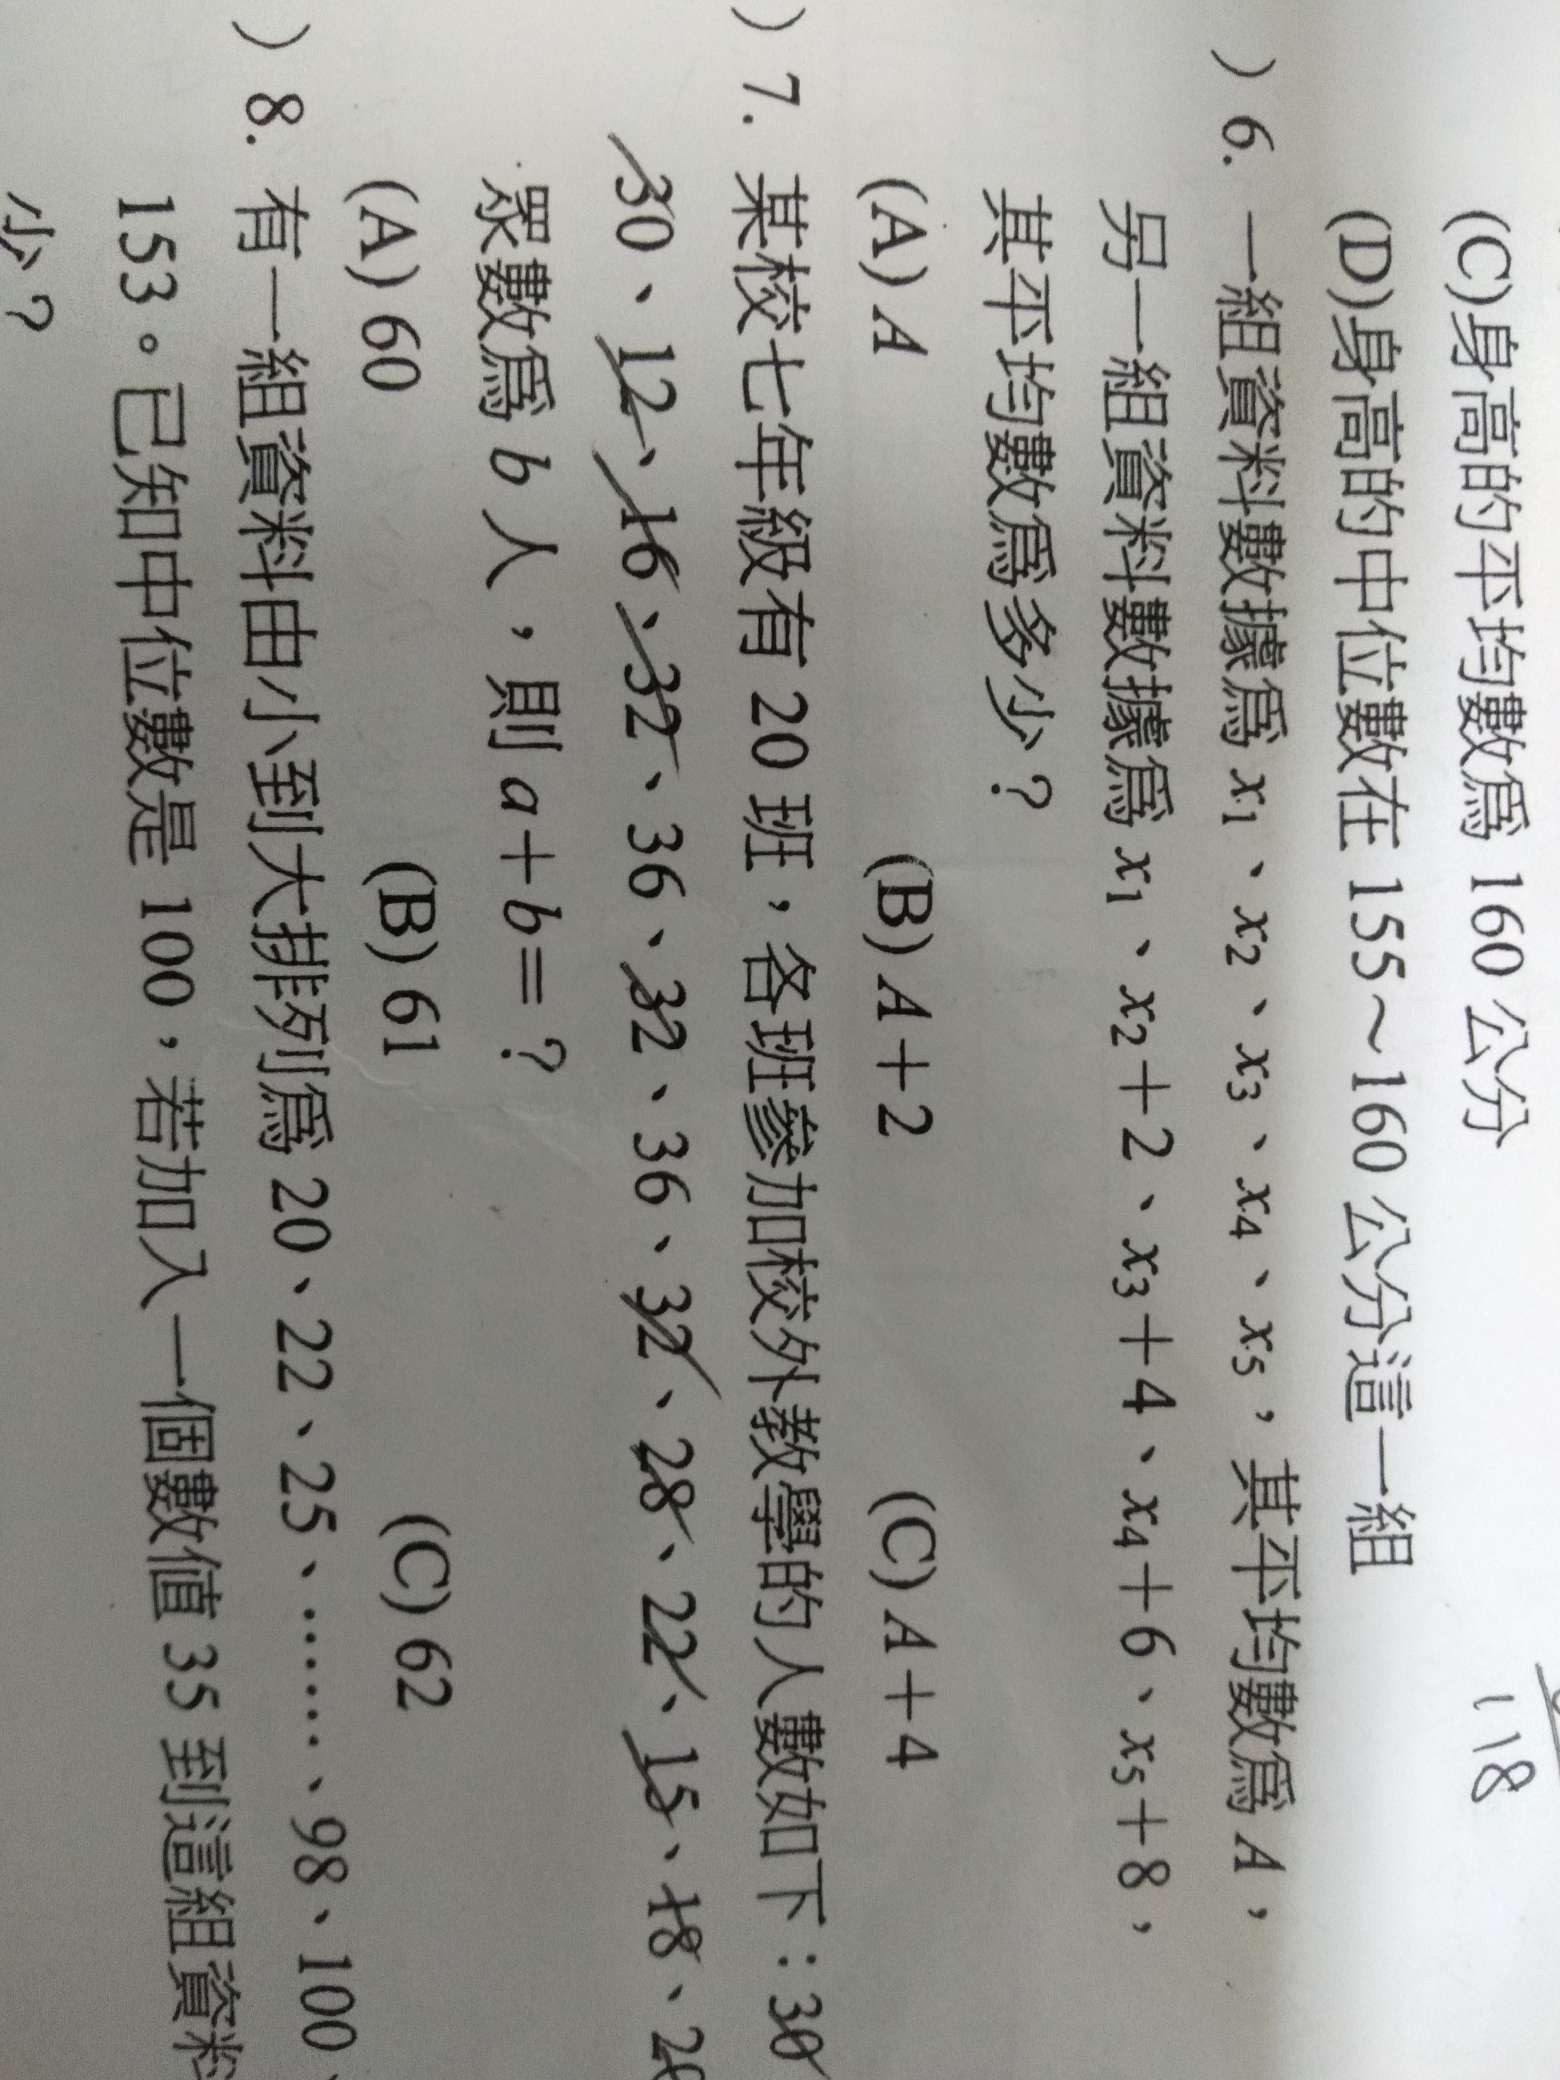 (C)身高的平均數爲 160 公分
(D)身高的中位數在 155～160 公分這一組
118
)6. 一組資料數據爲 x₁、x₂、x₃、x₄、x₅，其平均數爲 A，
另一組資料數據爲 x₁、x₂＋2、x₃＋4、x₄＋6、x₅＋8，
其平均數爲多少？
(A) A (B) A＋2 (C) A＋4
)7. 某校七年級有 20 班，各班參加校外教學的人數如下：30
30、12、16、32、36、32、36、32、28、22、15、18、20
眾數爲 b 人，則 a＋b＝？
(A) 60 (B) 61 (C) 62
)8. 有一組資料由小到大排列爲 20、22、25、……、98、100、
153。已知中位數是 100，若加入一個數值 35 到這組資料
少？